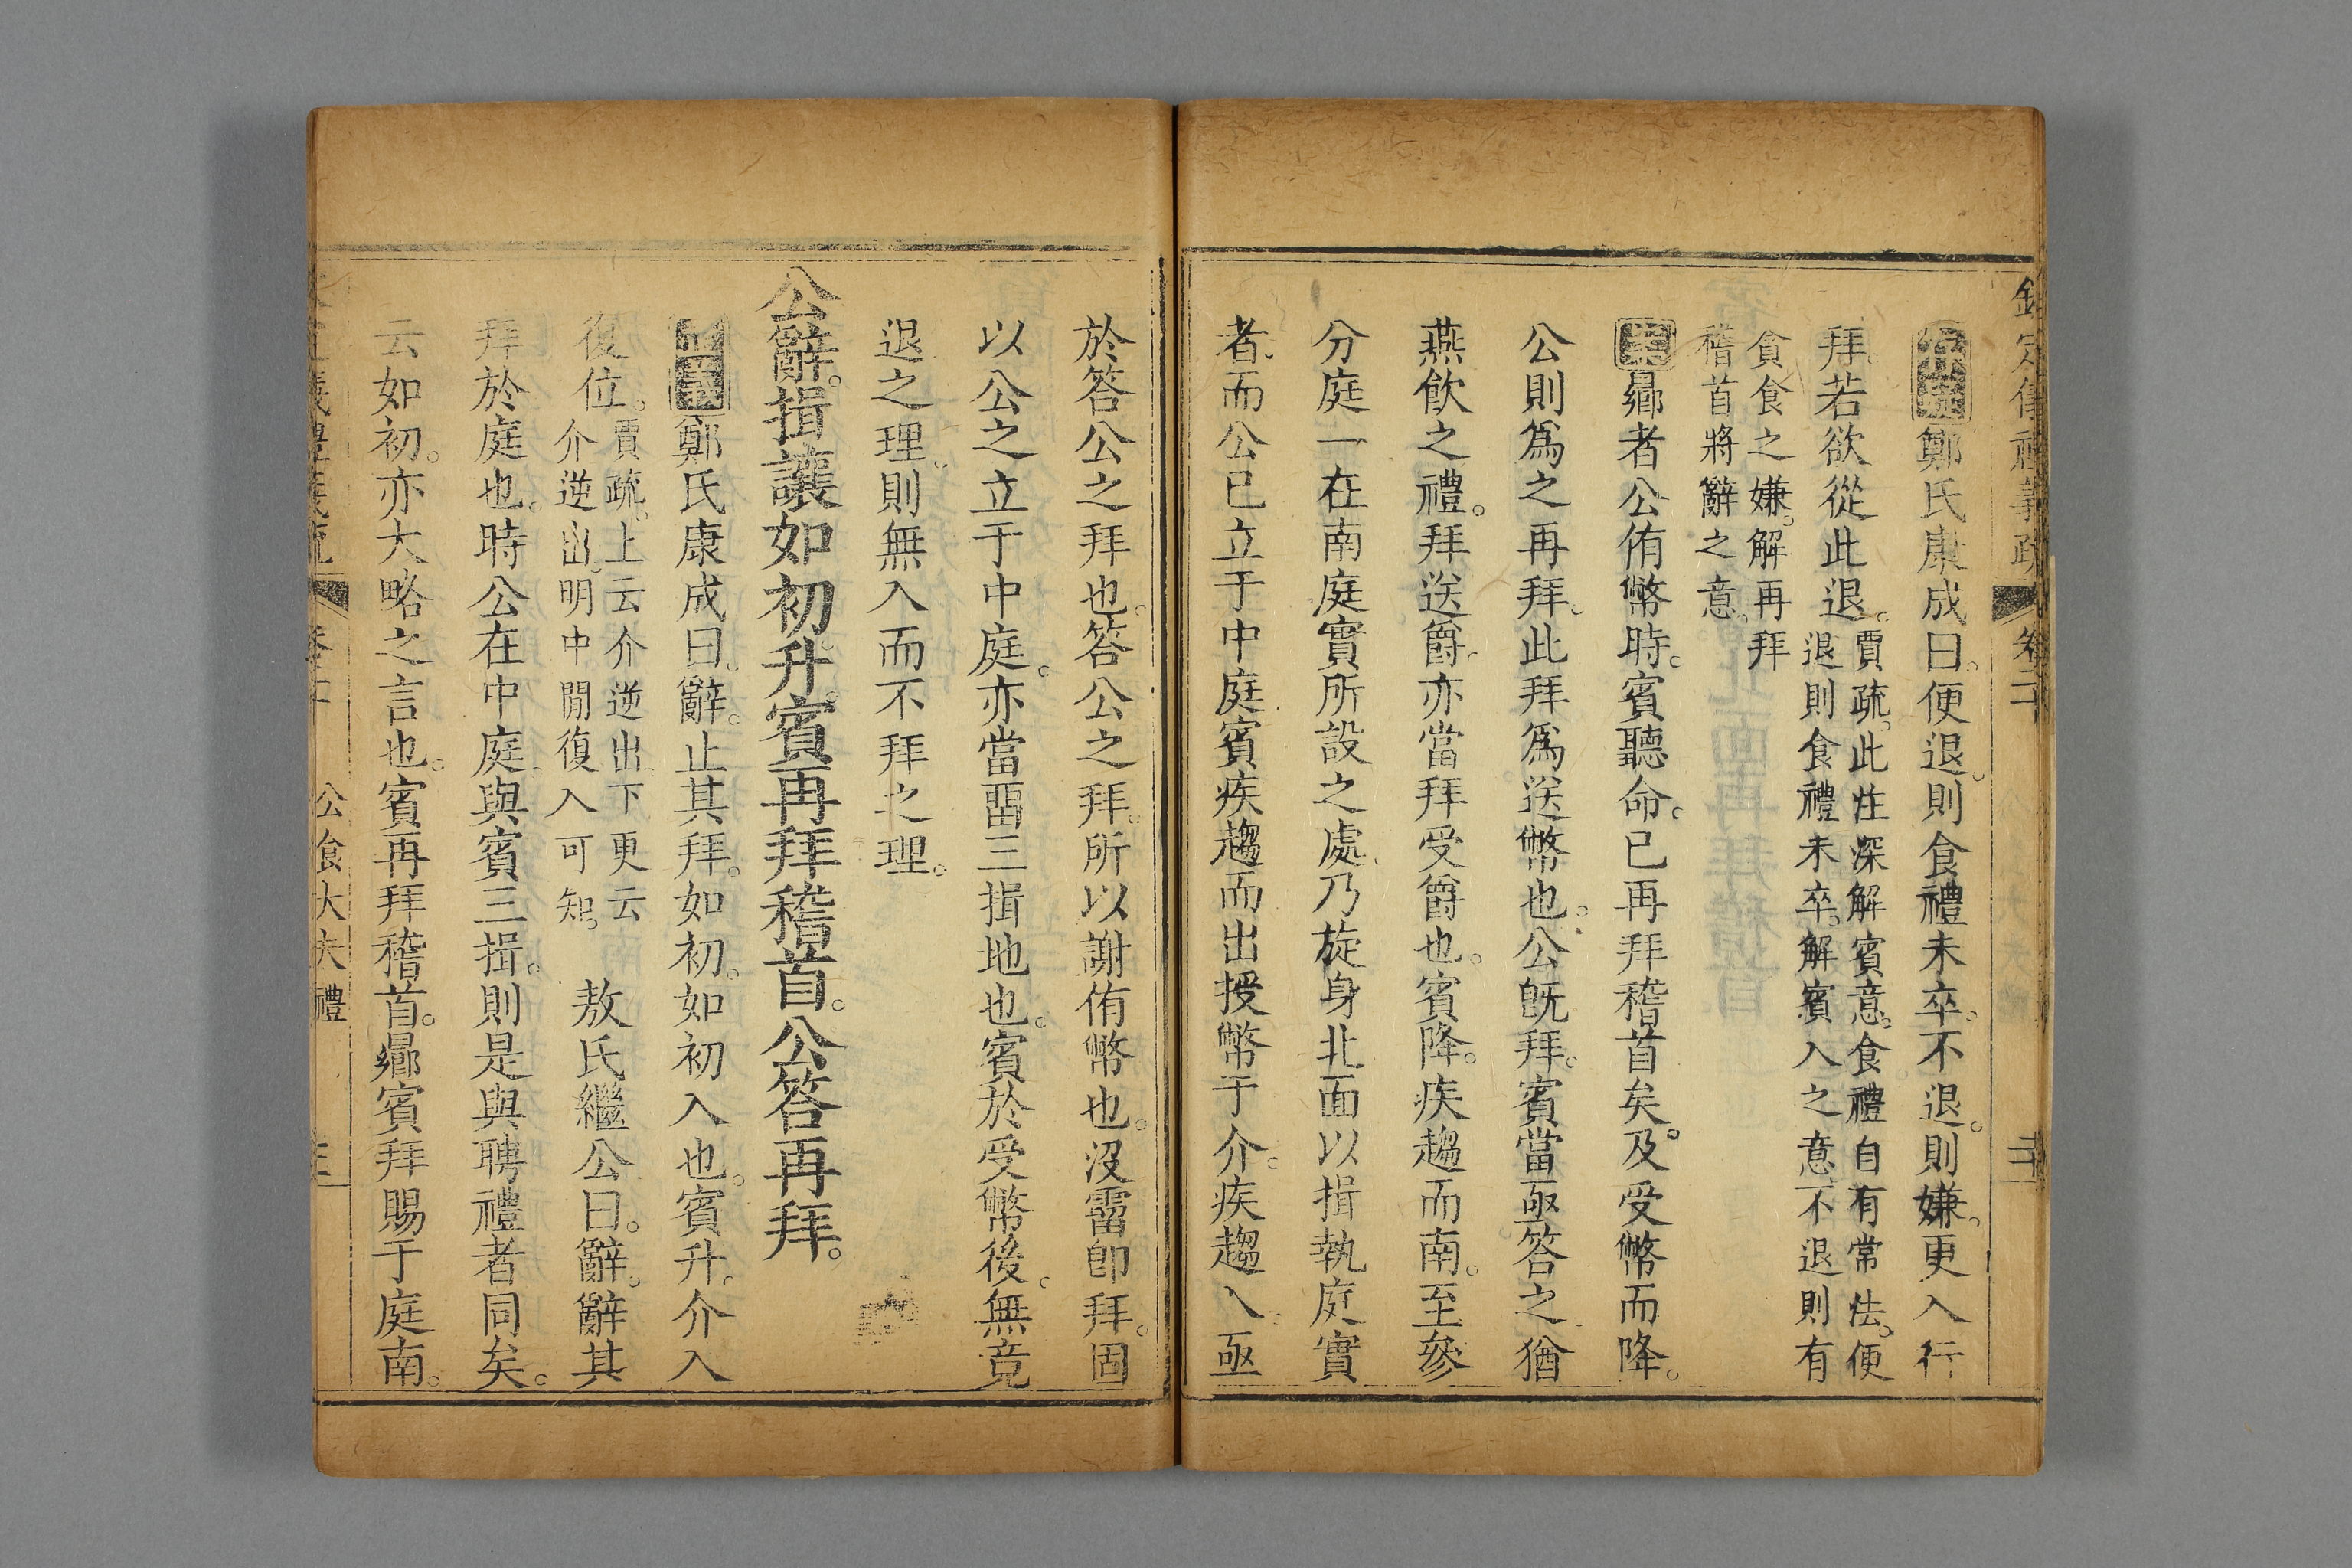 欽定儀禮義疏 卷二十
鄭氏康成曰。便退。則食禮未卒。不退。則嫌。更入行
拜。若欲從此退。賈疏。此注深解賓意。食禮自有常法。便
退則食禮未卒。解賓入之意。不退則有
貪食之嫌。解再拜
稽首將辭之意。
案曏者公侑幣時。賓聽命。已再拜稽首矣。及受幣而降。
公則爲之再拜。此拜爲送幣也。公旣拜。賓當亟答之猶
燕飮之禮。拜送爵。亦當拜受爵也。賓降。疾趨而南。至參
分庭一在南庭實所設之處。乃旋身北面以揖執庭實
者。而公已立于中庭賓疾趨而出授幣于介。疾趨入。亟
於答公之拜也。答公之拜。所以謝侑幣也。沒霤卽拜。固
以公之立于中庭。亦當霤三揖地也。賓於受幣後。無竟
退之理。則無入而不拜之理。
公辭。揖讓如初升。賓再拜稽首。公答再拜。
鄭氏康成曰。辭。止其拜。如初。如初入也。賓升。介入
復位。賈疏。上云介逆出下更云
介逆出。明中閒復入可知。
敖氏繼公曰。辭。辭其
拜於庭也。時公在中庭與賓三揖。則是與聘禮者同矣。
云如初。亦大略之言也。賓再拜稽首。曏賓拜賜于庭南。
公食大夫禮